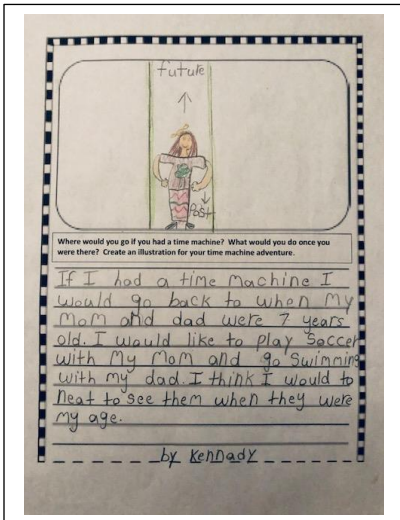 future
Past
Where would you go if you had a time machine? What would you do once you
were there? Create an illustration for your time machine adventure.
If I had a time machine I
would go back to when my
Mom and dad were 7 years
old. I would like to play Soccer
with My Mom and go Swimming
with my dad. I think I would to
neat to see them when they were
My age.
by Kennady